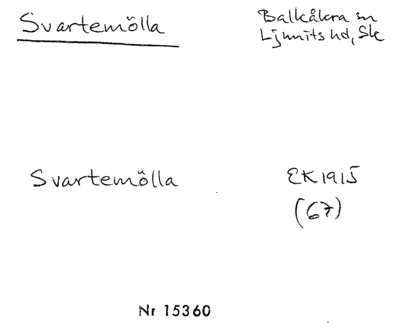 Svartemölla
Balkåkra sn
Ljunits hd, Sk
Svartemölla
EK1915
(67)
Nr 15360